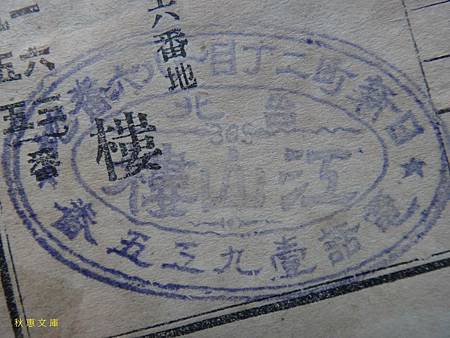 六番地
樓
日新町二丁目一八六番地
臺北
江山樓
電話壹九三五號
秋惠文庫